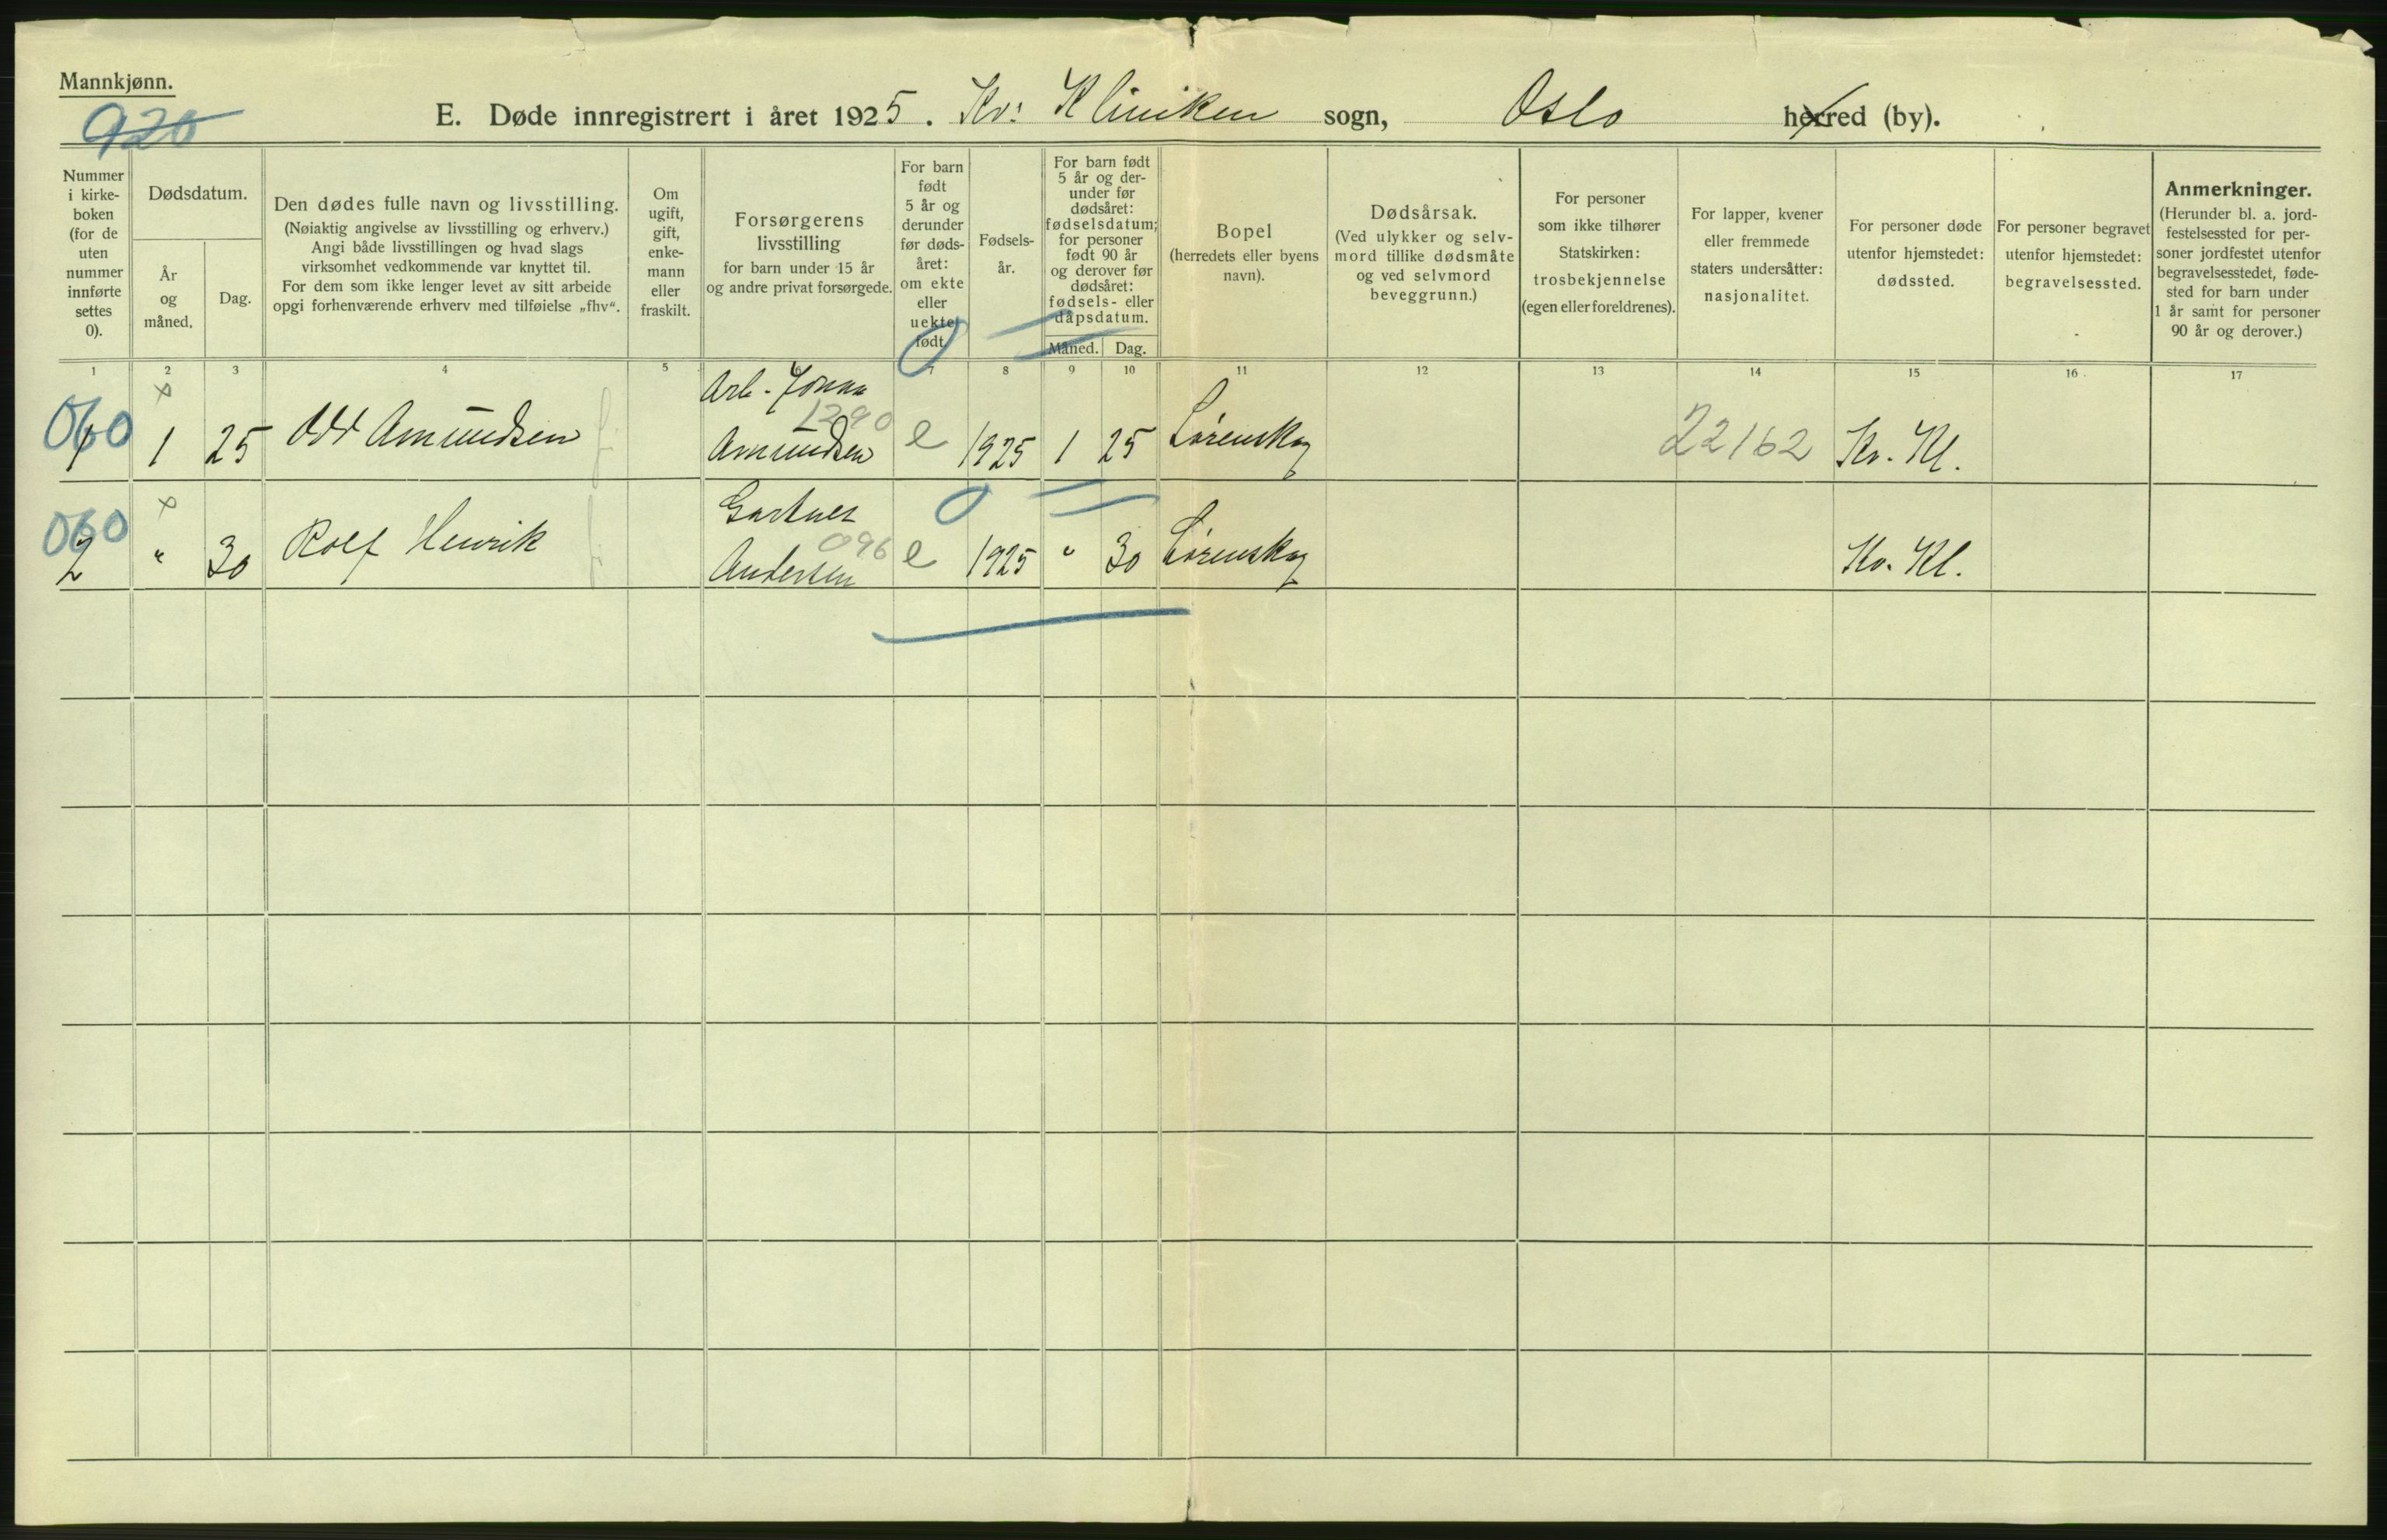 Mannkjønn.
920
E. Døde innregistrert i året 1925. Kv: Kliniken sogn, Oslo herred (by).
Nummer
i kirke-
boken
(for de
uten
nummer
innførte
settes
0).
Dødsdatum.
År
og
måned.
Dag.
Den dødes fulle navn og livsstilling.
(Nøiaktig angivelse av livsstilling og erhverv.)
Angi både livsstillingen og hvad slags
virksomhet vedkommende var knyttet til.
For dem som ikke lenger levet av sitt arbeide
opgi forhenværende erhverv med tilføielse „fhv“.
Om
ugift,
gift,
enke-
mann
eller
fraskilt.
Forsørgerens
livsstilling
for barn under 15 år
og andre privat forsørgede.
For barn
født
5 år og
derunder
før døds-
året:
om ekte
eller
uekte
født.
Fødsels-
år.
For barn født
5 år og der-
under før
dødsåret:
fødselsdatum;
for personer
født 90 år
og derover før
dødsåret:
fødsels- eller
dåpsdatum.
Måned.
Dag.
Bopel
(herredets eller byens
navn).
Dødsårsak.
(Ved ulykker og selv-
mord tillike dødsmåte
og ved selvmord
beveggrunn.)
For personer
som ikke tilhører
Statskirken:
trosbekjennelse
(egen eller foreldrenes).
For lapper, kvener
eller fremmede
staters undersåtter:
nasjonalitet.
For personer døde
utenfor hjemstedet:
dødssted.
For personer begravet
utenfor hjemstedet:
begravelsessted.
Anmerkninger.
(Herunder bl. a. jord-
festelsessted for per-
soner jordfestet utenfor
begravelsesstedet, føde-
sted for barn under
1 år samt for personer
90 år og derover.)
1 2 3 4 5 6 7 8 9 10 11 12 13 14 15 16 17
Arb.
1290
060
1 1 25 Odd Amundsen Amundsen e 1925 1 25 Lørenskog 22162 Kv. Kl.
Gartner
060 096
2 " 30 Rolf Henrik Andersen e 1925 " 30 Lørenskog Kv. Kl.